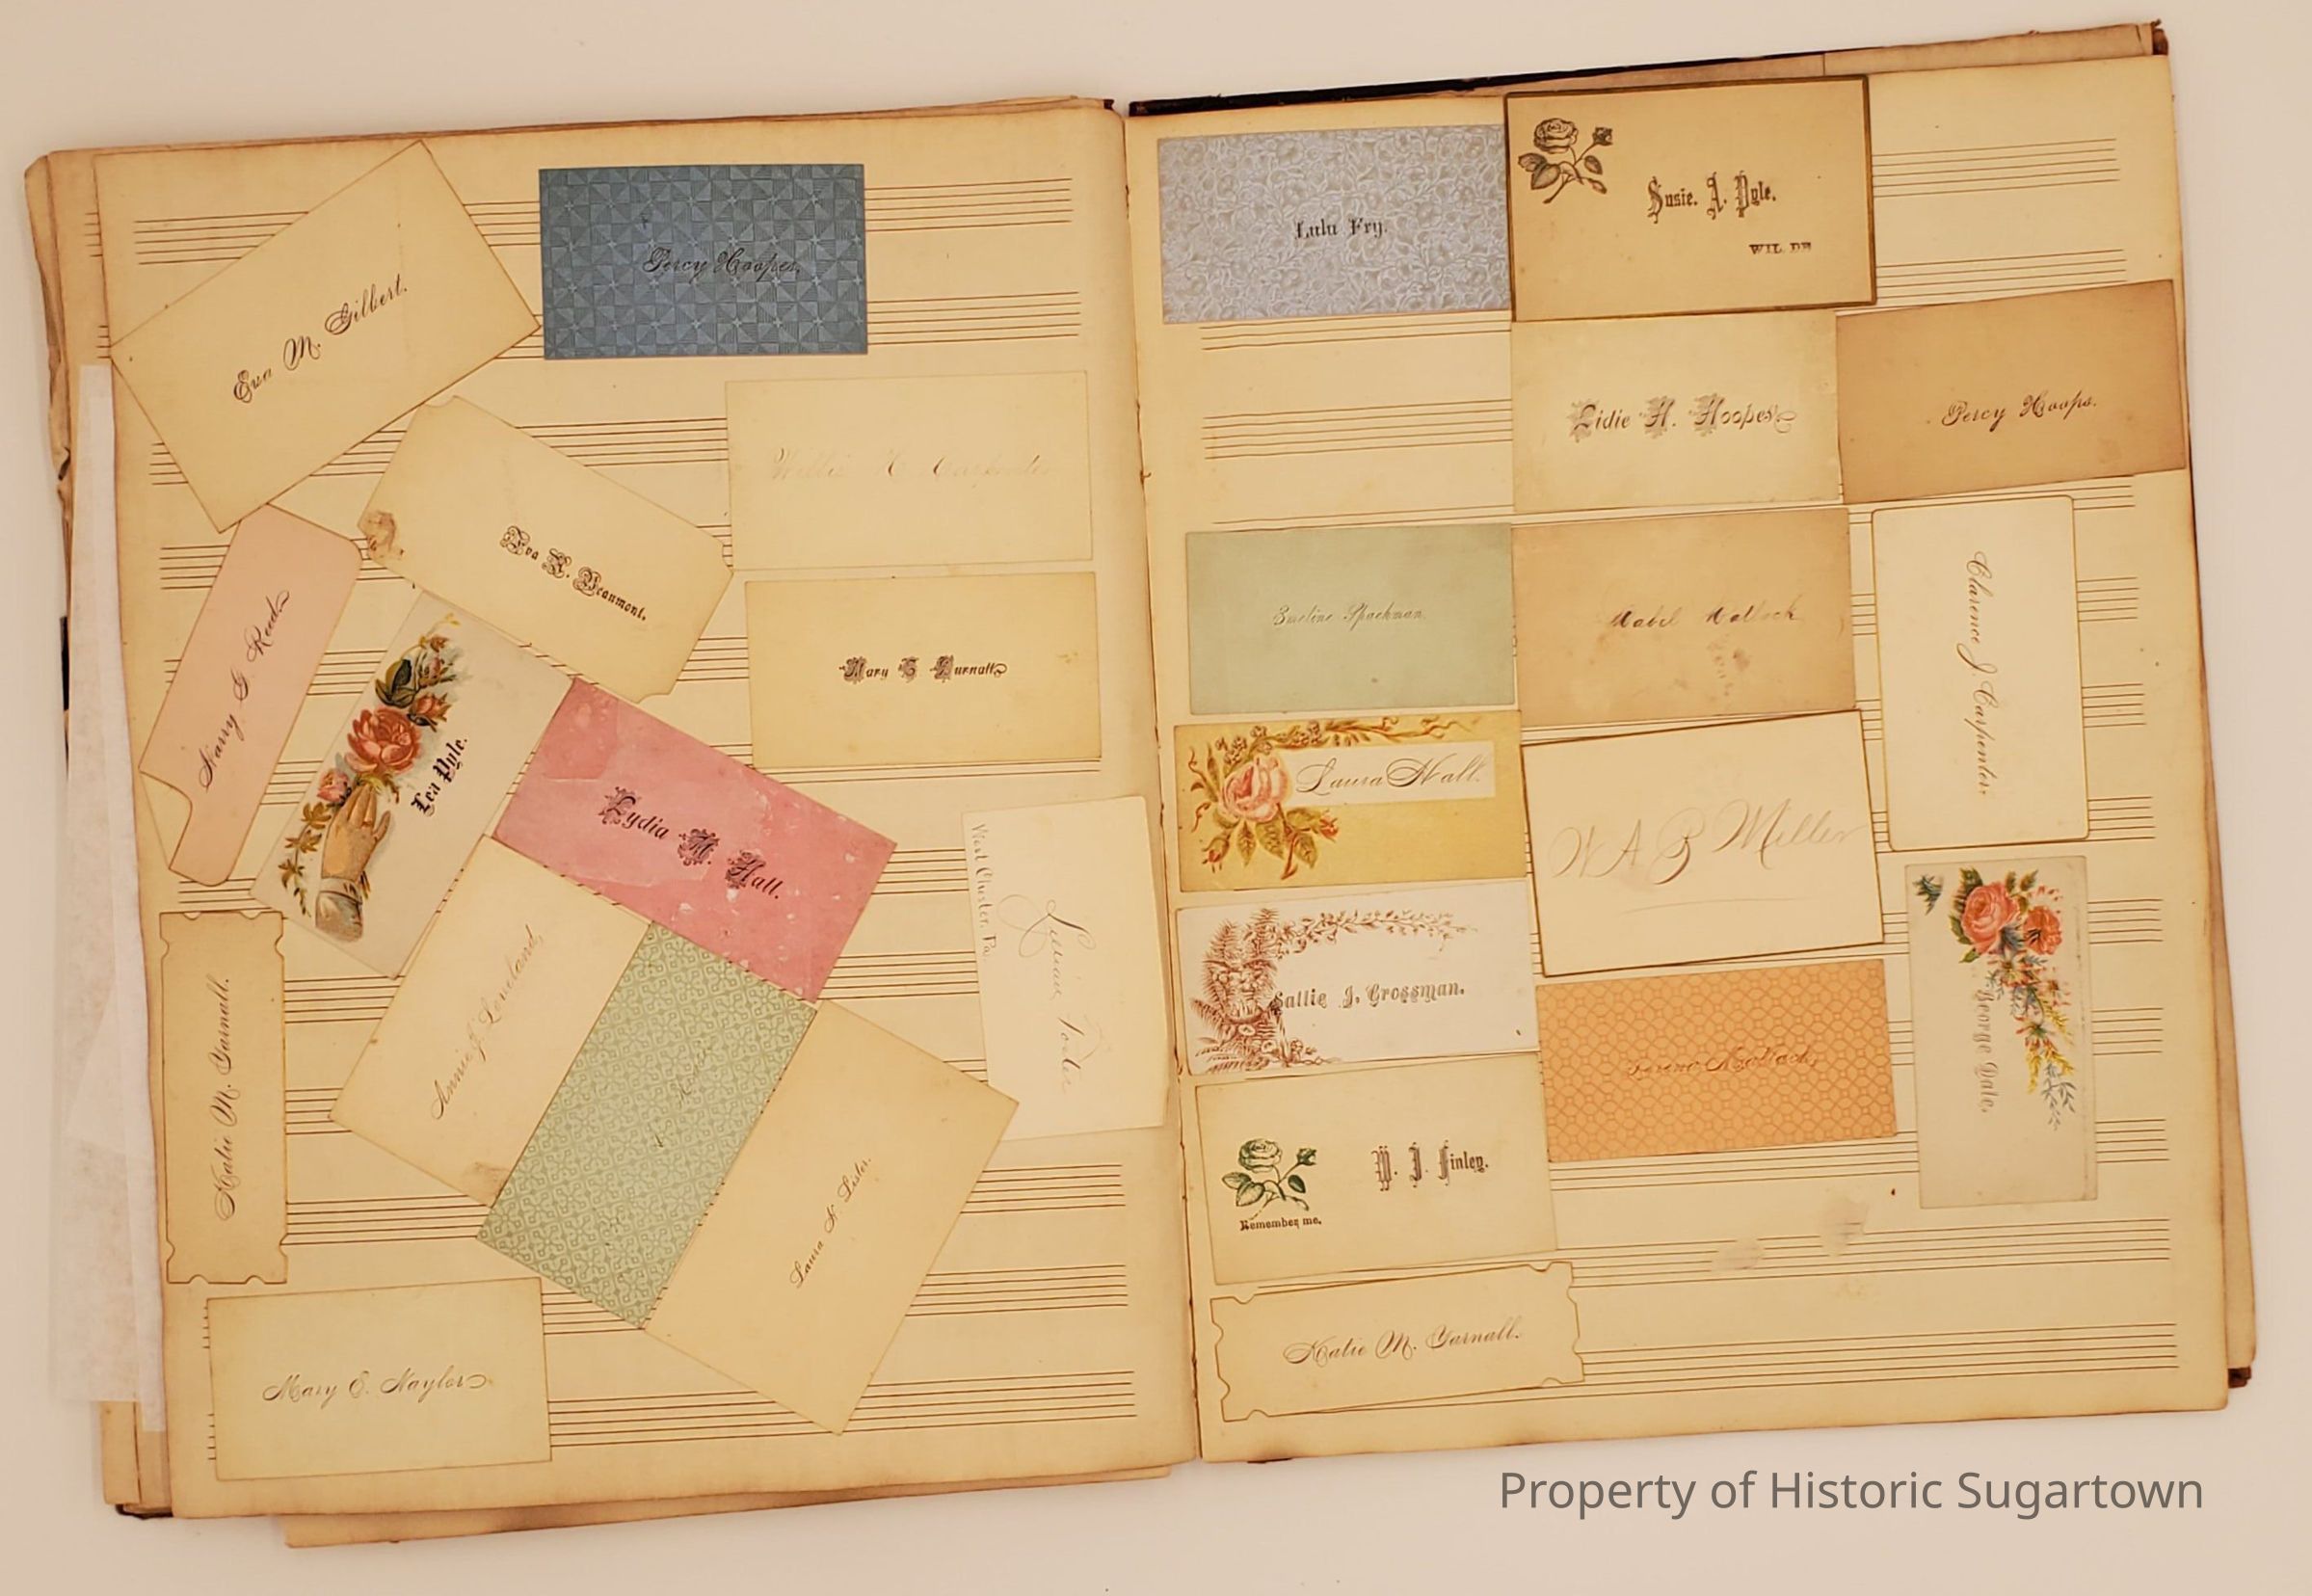 Eva M. Gilbert.
Percy Hoopes,
Willie H. Carpenter
Eva K. Beaumont.
Harry G Reed
Mary E Durnall
Lea Pyle.
Lydia M. Hall.
West Chester, Pa.
Foster
Annie J. Loveland,
Katie M. Yarnall.
Laura N. Lister.
Mary E. Naylor
Lulu Fry.
Susie. A. Pyle.
WIL. DE
Lidie H. Hoopes
Percy Hoops.
Emeline Spackman
Mabel Matlack
Clarence J. Carpenter.
Laura Hall.
W A P Miller
Sallie J. Grossman.
Matlack,
George Date.
W. J. Finley.
Remember me.
Katie M. Yarnall.
Property of Historic Sugartown